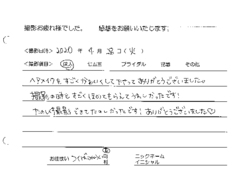 撮影お疲れ様でした。 感想をお願いいたします。
<撮影日時> 2020 年 4 月 日(火)
<撮影項目> 成人 七五三 ブライダル 記念 その他
ヘアメイクをすごくかわいくして下さってありがとうございました
撮影の時もすごくほめてもらえてうれしかったです!
たのしく撮影できてたのしかったです!ありがとうございました♡
お住まい つくばみらい 市 ニックネーム
イニシャル